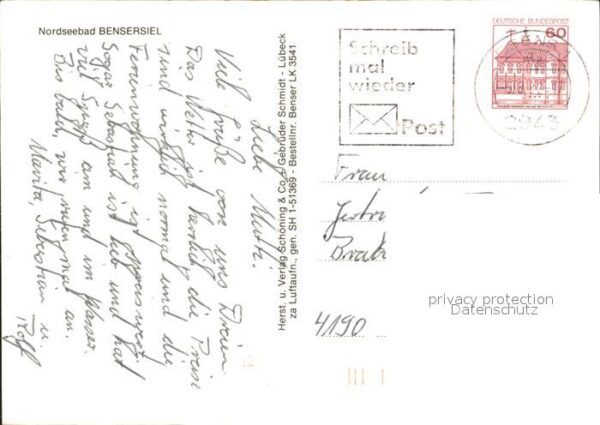 Nordseebad BENSERSIEL
Liebe Mutti.
Viele Grüße von uns Dreien
Das Wetter ist herrlich, die Preise
sind wirklich normal und die
Ferienwohnung ist preiswert.
Sogar Sebastian ist lieb und hat
viel Spaß am und im Wasser.
Bis bald, wir rufen mal an.
Marita, Sebastian u.
Rolf
Herst. u. Verlag Schöning & Co + Gebrüder Schmidt - Lübeck
za Luftaufn., gen. SH 1-51369 - Bestellnr. Benser LK 3541
Schreib
mal
wieder
Post
DEUTSCHE BUNDESPOST
60
2943
Frau
4190
privacy protection
Datenschutz